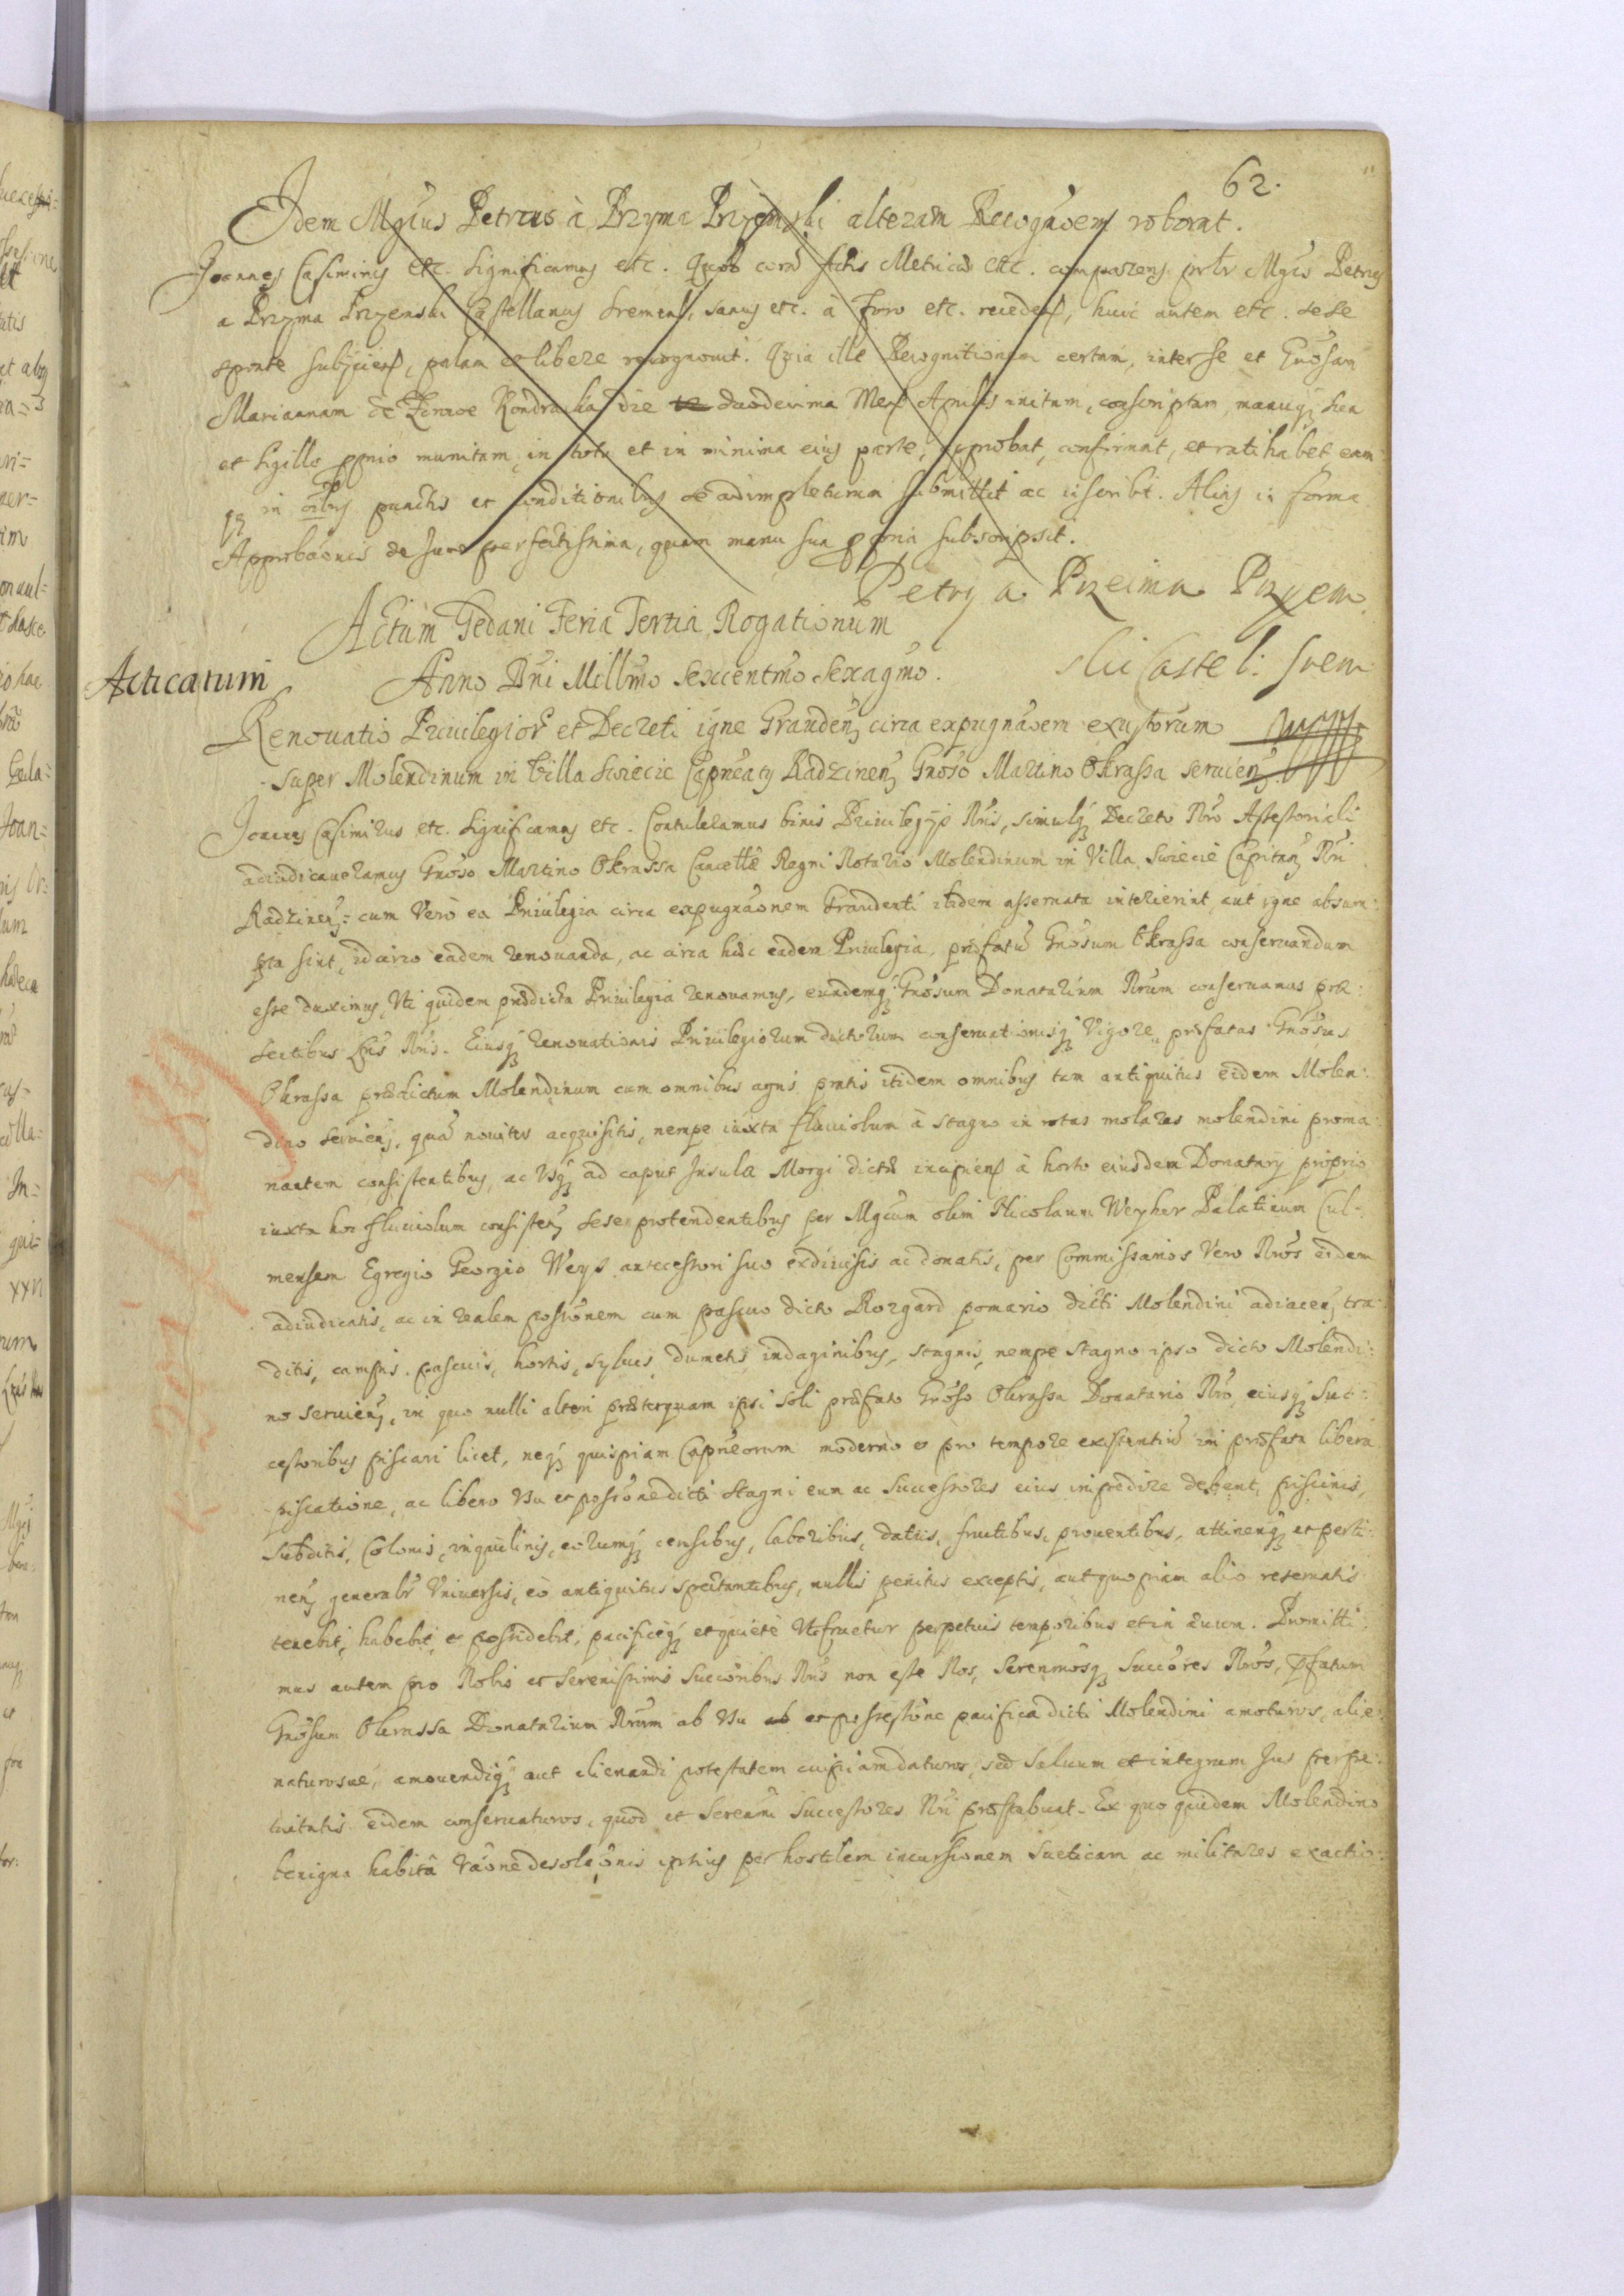 62.
Idem Mgcus Petrus à Przyma Przyiemski alteram Recognoem roborat.
Joannes Casimirus etc. Significamus etc. Quod coram Actis Metrices etc. comparens prlr Mgcus Petrus
a Przyma Przyemski Castellanus Sremens, sanus etc. à Foro etc. recedens, huic autem etc. sese
sponte subyciens, palam et libere recognovit. Quia ille Recognitionem certam, inter se et Gnosam
Mariannam de die duodecima Mens Aprilis initam, conscriptam, manuq sua
et Sigillo pprio munitam, in toto et in minima eius parte, approbat, confirmat, et ratihabet eam
qz in oibus punctis et conditionibus se adimpleturum submittit ac inscribt. Alias in forma
Approbaonis de Jure perfectissima, quam manu sua ppria subscripsit.
Petrus a Przeima Przyem
ski Castel: Srem
Actum Gedani Feria Tertia Rogationum
Anno Dni Millmo Sexcentmo Sexagmo.
Acticatum
Renouatio Priuilegior et Decreti igne Graudenz circa expugnaoem exustorum
super Molendinum in Villa Swiecie Capneatus Radzinenz Gnoso Martino Okrassa seruienz.
Joannes Casimirus etc. Significamus etc. Contuleramus binis Priuilegijs Nris, simulqz Decreto Nro Assessoriali
adiudicaueramus Gnoso Martino Okrassa Cancellae Regni Notario Molendinum in Villa Swiecie Capitanz Nri
Radzinenz: cum Vero ea Priuilegia circa expugnaonem Graudenti ibidem asseruata interierint, aut igne absum:
pta sint, idcirco eadem renouanda, ac circa haec eadem Priuilegia, praefatum Gnosum Okrassa conseruandum
esse duximus, Uti quidem praedicta Priuilegia renouamus, eundemqz Gnosum Donatarium Nrum conseruamus prae:
sentibus Lris Nris. Eiusqz renouationis Priuilegiorum dictorum conseruationisqz Vigore, praefatus Gnosus
Okrassa praedictum Molendinum cum omnibus agris pratis itidem omnibus tam antiquitus eidem Molen:
dino seruienz, quam nouiter acquisitis, nempe iuxta fluuiolum à stagno in rotas molares molendini proma:
nantem consistentibus, ac Vsqz ad caput Insula Morgi dictae incipiens à horto eiusdem Donatarij proprio
iuxta hoc fluuiolum consistenz sese protendentibus per Mgcum olim Nicolaum Weyher Palatinum Cul:
mensem Egregio Georgio Weys antecessori suo exdiuisis ac donatis, per Commissarios Vero Nros eidem
adiudicatis, ac in realem possonem cum pascuo dicto Rozgard pomario dicti Molendini adiacenz tra:
ditis, campis, pascuis, hortis, syluis, dumetis, indaginibus, stagnis, nempe stagno ipso dicto Molendi:
no seruienz, in quo nulli alteri praeterquam ipsi soli praefato Gnoso Okrassa Donatario Nro, eiusqz Suc:
cessoribus piscari licet, neqz quispiam Capneorum moderno et pro tempore existentium in praefata libera
piscatione, ac libero Usu et possone dicti Stagni eum ac Successores eius impedire debent, piscinis,
Subditis, Colonis, inquilinis, eorumqz censibus, laboribus, datiis, fructibus, prouentibus, attinenqz et perti:
nenz generalr Vniuersis, eò antiquitus spectantibus, nullis penitus exceptis, aut quopiam alio reseruatis
tenebit, habebit, et possidebit, pacificèqz et quietè Utifruetur perpetuis temporibus et in aeuum. Promitti:
mus autem pro Nobis et Serenissimis Succoribus Nris non esse Nos, Serenmosqz Succores Nros, pfatum
Gnosum Okrassa Donatarium Nrum ab Vsu et possessione pacifica dicti Molendini amoturos, alie:
naturosue, amouendiqz aut alienandi potestatem cuipiam daturos, sed Saluum et integrum Jus perpe:
tuitatis eidem conseruaturos, quod et Serenmi Successores Nri praestabunt. Ex quo quidem Molendino
benigna habitâ raone desolaonis ipsius per hostilem incursionem Sueticam ac militares exactio: